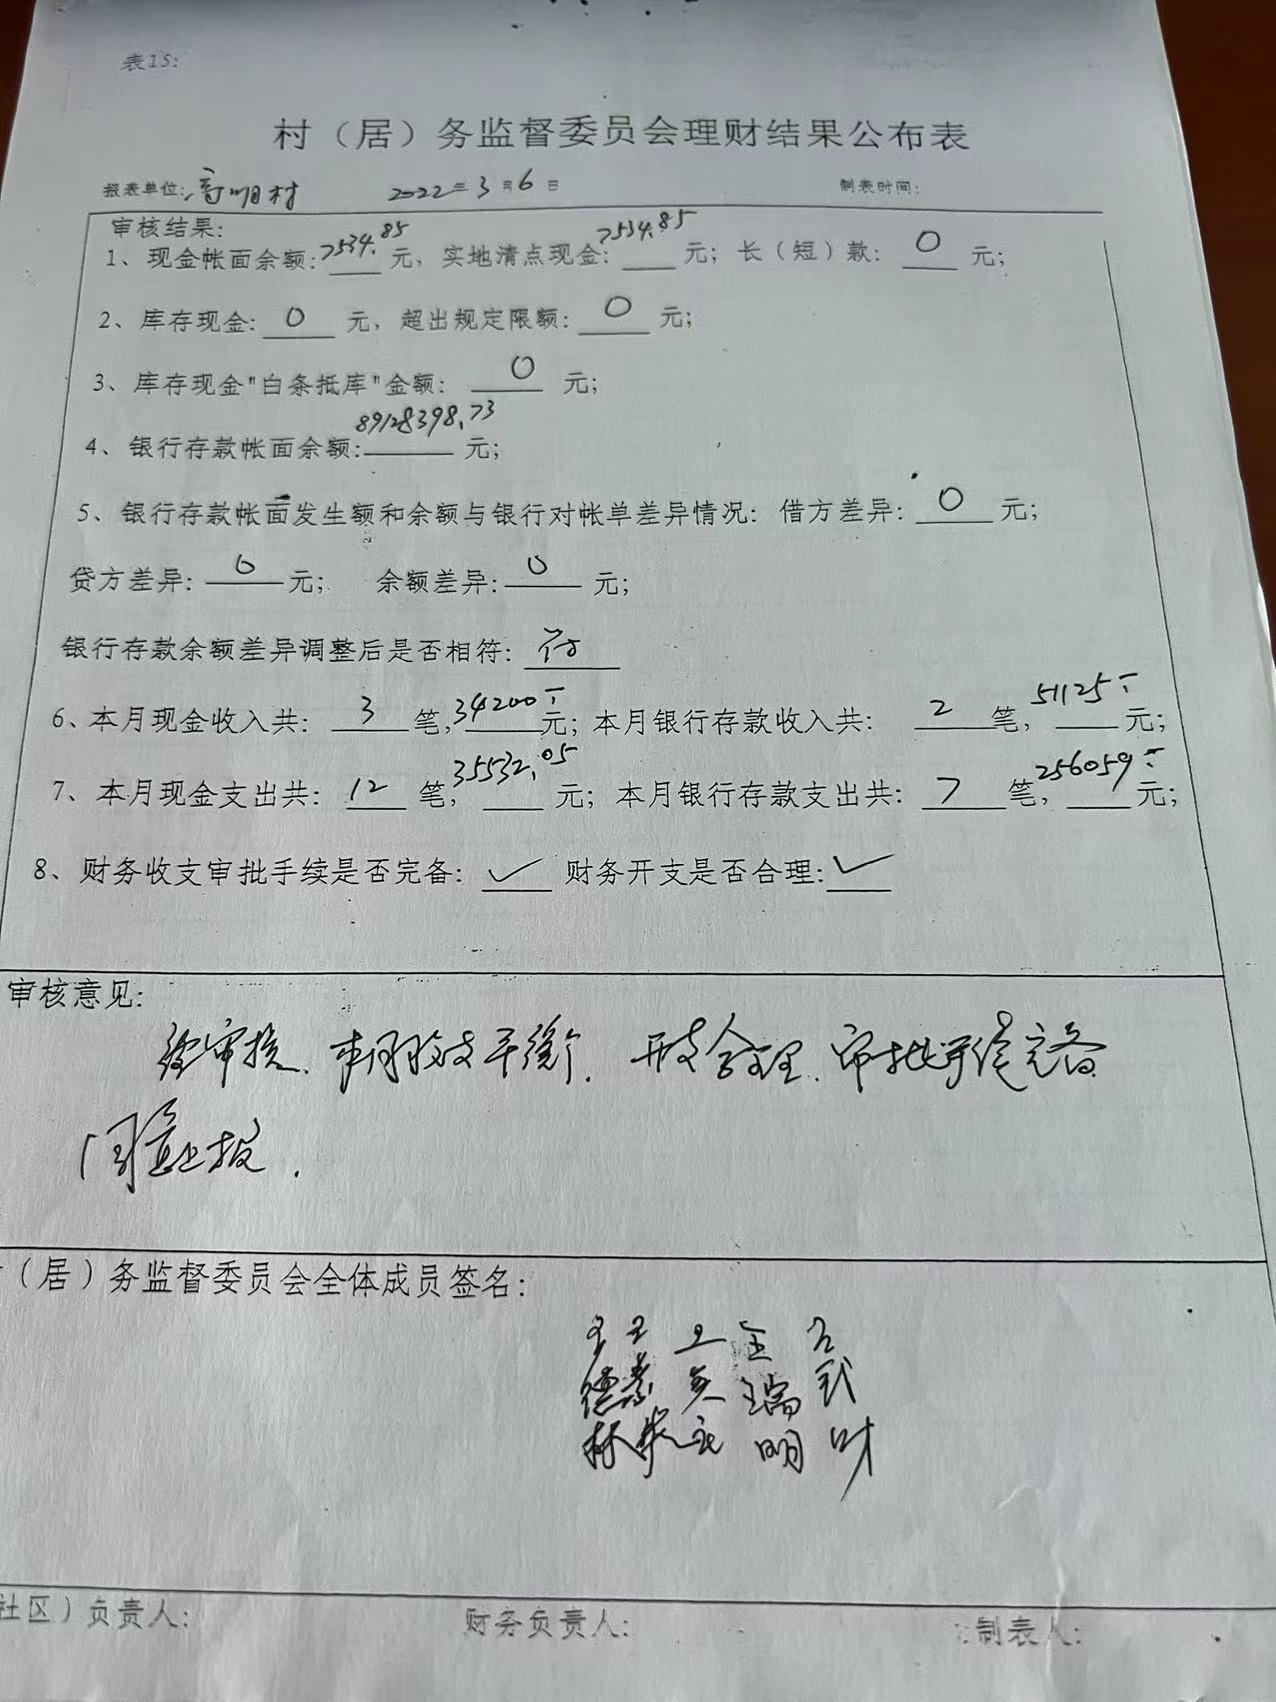 表15:
村（居）务监督委员会理财结果公布表
报表单位: 高明村 2022年3月6日 制表时间:
审核结果:
1、现金帐面余额: 7534.85 元，实地清点现金: 7534.85 元；长（短）款: 0 元；
2、库存现金: 0 元，超出规定限额: 0 元；
3、库存现金"白条抵库"金额: 0 元；
4、银行存款帐面余额: 89128398.73 元；
5、银行存款帐面发生额和余额与银行对帐单差异情况: 借方差异: 0 元；
贷方差异: 0 元； 余额差异: 0 元；
银行存款余额差异调整后是否相符: 符
6、本月现金收入共: 3 笔, 34200 元；本月银行存款收入共: 2 笔, 51125 元；
7、本月现金支出共: 12 笔, 35532.05 元；本月银行存款支出共: 7 笔, 256059 元；
8、财务收支审批手续是否完备: ✓ 财务开支是否合理: ✓
审核意见:
经审核、本月收支平衡、开支合理、审批手续完备
同意上报.
（居）务监督委员会全体成员签名:
社区）负责人: 财务负责人: 制表人: